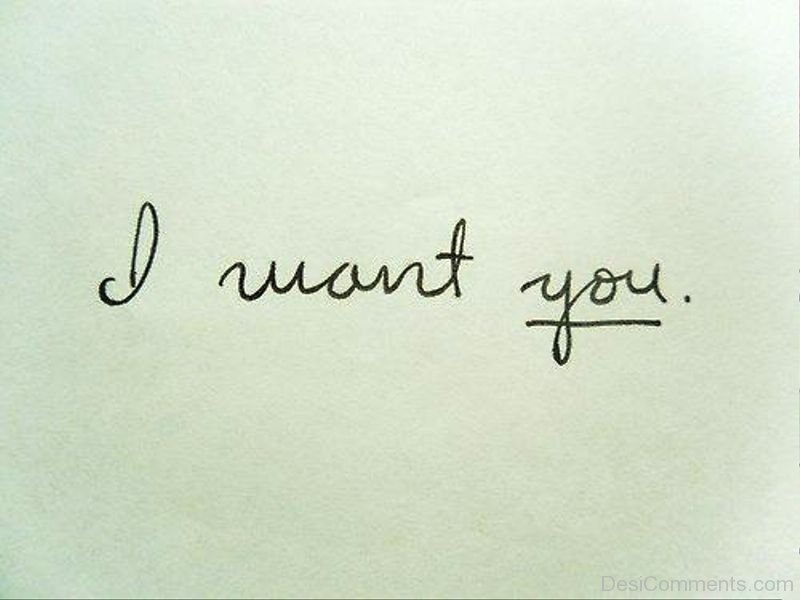 I want you.
DesiComments.com